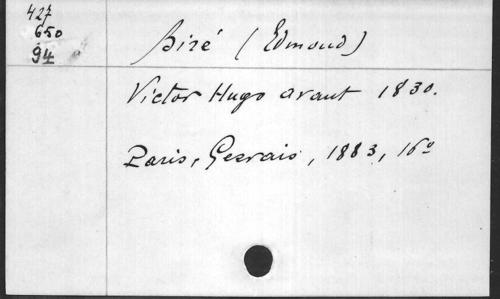 427
650
94
Biré (Edmond)
Victor Hugo avant 1830.
Paris, Gervais, 1883, 16º